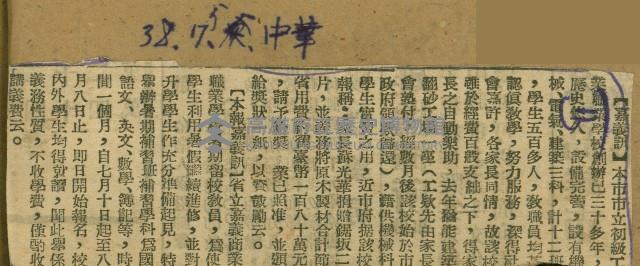 38.7.5 中華
【嘉義訊】本市市立初級工
業職業學校創辦已三十多年，
歷史悠久，設備完善，設有機
械、電氣、建築三科，計十二班
，學生五百多人，教職員均甚
認真敎學，努力服務，深得社
會嘉許，各家長同情，故該校
雖於經費百般支絀之下，得家
長之自動樂助，去年猶能建築
翻砂工場一座（工欵先由家長
會墊付，經數月後該校始於市
政府領欵歸還），藉供機械科
學生實習之用，近市府據該校
報稱：家長蘇光華捐贈錫坂二
片，並義務將原木製材合計節
省用費舊臺幣一百八十萬元
，請予褒獎，業已照准，並頒
給獎狀一紙，以資鼓勵云。
【本報嘉義訊】省立嘉義商業
職業學校暑期留校敎員，爲使
學生利用暑假繼續進修，並對
升學學生作充分準備起見，特
舉辦暑期補習班補習學科爲國
語文、英文、數學、簿記等，時
間一個月，自七月十日起至八
月八日止，即日開始報名，校
內外學生均得就讀，聞此舉係
義務性質，不收學費，僅酌收
講義費云。